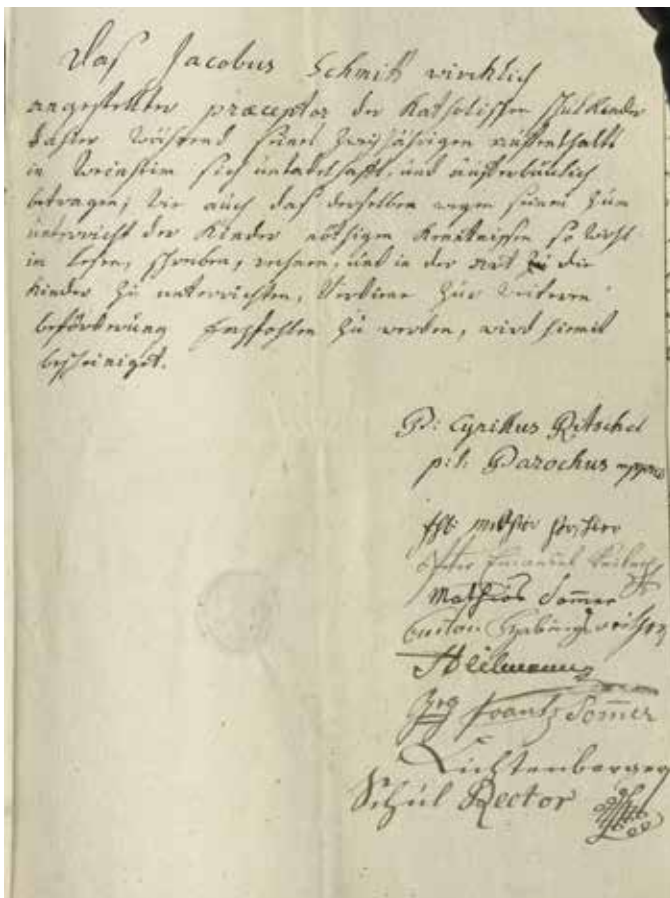 Daß Jacobus Schmitt wircklich
angestellter præceptor der Katholischen Schul Kinder
dahier während seines Zweyjährigen auffenthalts
in Weinheim sich untadelhafft, und aufferbäulich
betragen; wie auch daß derselbe wegen seinen zum
unterricht der Kinder nöthigen Kenntnissen so wohl
in lesen, schreiben, rechnen, und in der art die
Kinder zu unterrichten, Verdiene zur weiteren
beförderung Empfohlen zu werden, wird hiemit
bescheiniget.
P: Cyrillus Ritschel
p:t: Parochus mppria
Emanuel
Mathias Sommer
Anton
Heilmann
Frantz Sommer
Lichtenberger
Schul Rector